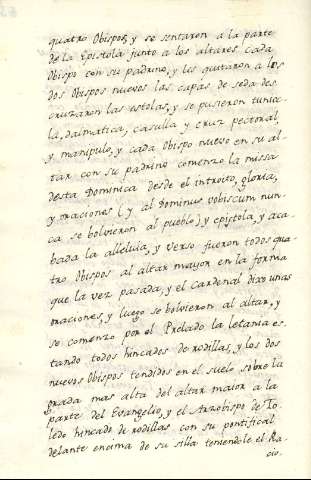 quatro Obispos, y se sentaron a la parte
de la Epistola junto a los altares. Cada
Obispo con su padrino, y les quitaron a los
dos Obispos nuevos las capas de seda des
cruzaron las estolas, y se pusieron tunice
la, dalmatica, casulla y cruz pectoral,
y manipulo, y cada Obispo nuevo en su al-
tar con su padrino comenzo la missa
desta Dominica desde el introito, gloria,
y oraciones (y al Dominus vobiscum nun-
ca se bolvieron al pueblo) y epistola, y aca-
bada la alleluia, y verso fueron todos qua-
tro Obispos al altar mayor en la forma
que la vez pasada, y el Cardenal dixo unas
oraciones, y luego se bolvieron al altar, y
se comenzo por el Prelado la letania es-
tando todos hincados de rodillas, y los dos
nuevos Obispos tendidos en el suelo sobre la
grada mas alta del altar maior a la
parte del Evangelio, y el Arzobispo de To-
ledo hincado de rodillas con su pontifical
delante encima de su silla teniendole el Ra-
cio.